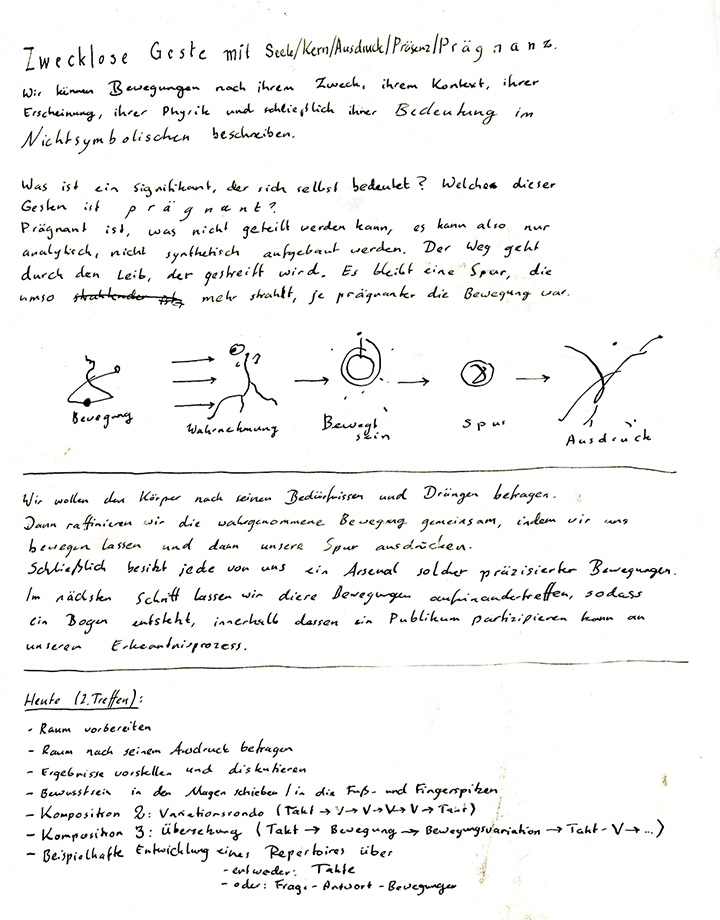 Zwecklose Geste mit Seele/Kern/Ausdruck/Präsenz/Prägnanz.
Wir können Bewegungen nach ihrem Zweck, ihrem Kontext, ihrer
Erscheinung, ihrer Physik und schließlich ihrer Bedeutung im
Nichtsymbolischen beschreiben.
Was ist ein Signifikant, der sich selbst bedeutet? Welche dieser
Gesten ist prägnant?
Prägnant ist, was nicht geteilt werden kann, es kann also nur
analytisch, nicht synthetisch aufgebaut werden. Der Weg geht
durch den Leib, der gestreift wird. Es bleibt eine Spur, die
umso strahlender ist, mehr strahlt, je prägnanter die Bewegung war.
Bewegung
Wahrnehmung
Bewegt
sein
Spur
Ausdruck
Wir wollen den Körper nach seinen Bedürfnissen und Drängen befragen.
Dann raffinieren wir die wahrgenommene Bewegung gemeinsam, indem wir uns
bewegen lassen und dann unsere Spur ausdrücken.
Schließlich besitzt jede von uns ein Arsenal solcher präzisierter Bewegungen.
Im nächsten Schritt lassen wir diese Bewegungen aufeinandertreffen, sodass
ein Bogen entsteht, innerhalb dessen ein Publikum partizipieren kann an
unserem Erkenntnisprozess.
Heute (2. Treffen):
- Raum vorbereiten
- Raum nach seinem Ausdruck befragen
- Ergebnisse vorstellen und diskutieren
- Bewusstsein in den Magen schieben / in die Fuß- und Fingerspitzen
- Komposition 2: Variationsrondo (Takt → V → V → V → V → Takt)
- Komposition 3: Übersetzung (Takt → Bewegung → Bewegungsvariation → Takt-V → ...)
- Beispielhafte Entwicklung eines Repertoires über
- entweder: Takte
- oder: Frage-Antwort-Bewegungen